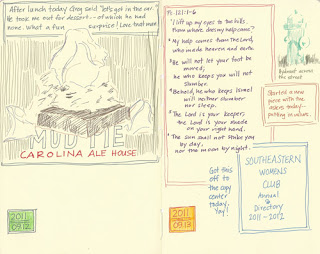 After lunch today Greg said "let's get in the car."
He took me out for dessert -- of which he had
none. What a fun surprise! Love that man.
MUD PIE
CAROLINA ALE HOUSE
2011
09.12
Ps. 121:1-6
"I lift up my eyes to the hills.
From where does my help come?
My help comes from the Lord,
who made heaven and earth.
He will not let your foot be
moved;
he who keeps you will not
slumber.
Behold, he who keeps Israel
will neither slumber
nor sleep.
The Lord is your keeper;
the Lord is your shade
on your right hand.
The sun shall not strike you
by day,
nor the moon by night.
across
the street
Started a new
piece with the
today-
putting in values.
Got this
off to
the copy
center
today.
Yay!
SOUTHEASTERN
WOMENS
CLUB
Annual
Directory
2011-2012
2011
09.13